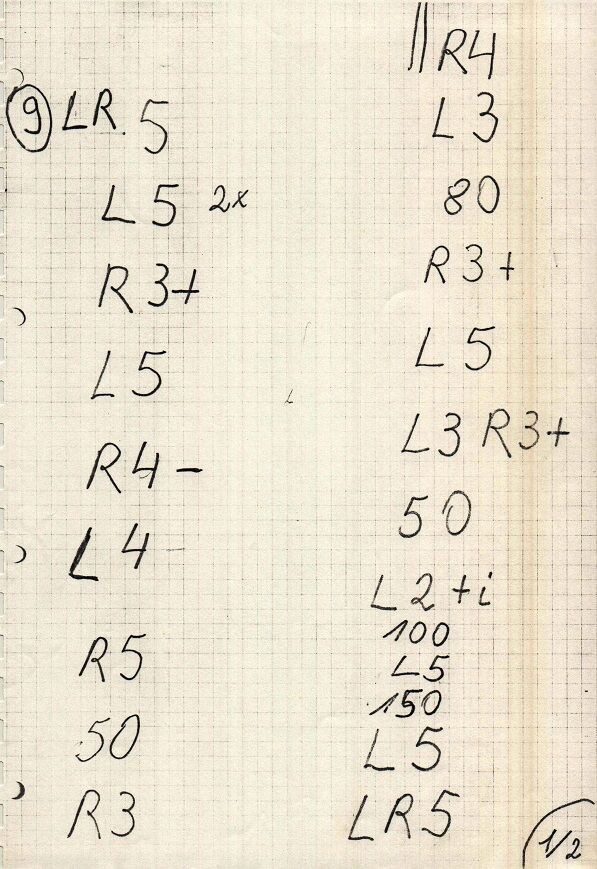 9 LR. 5
L5 2x
R3+
L5
R4-
L4-
R5
50
R3
R4
L3
80
R3+
L5
L3 R3+
50
L2+i
100
L5
150
L5
LR5
1/2